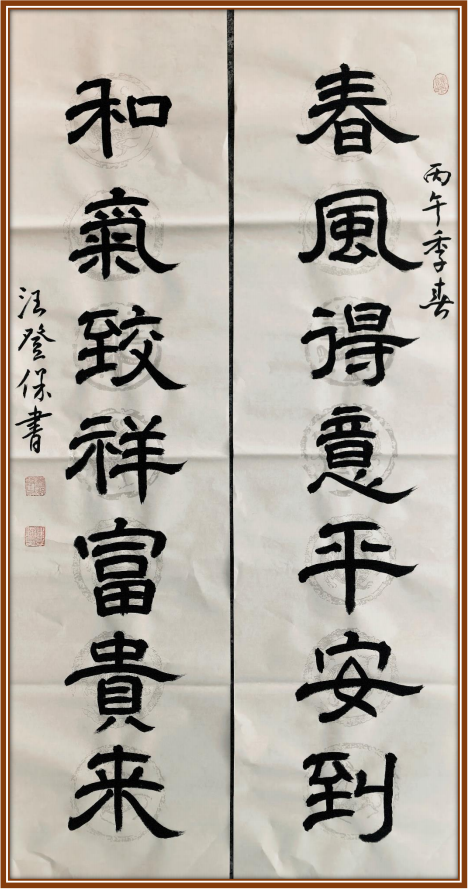 丙午季春
春風得意平安到
和氣致祥富貴来
汪登保書